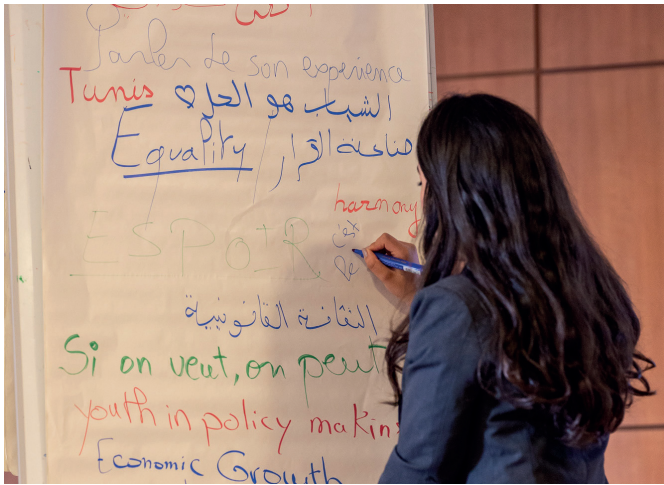 Parler de son experience
Tunis ♡ الشباب هو الحل
Equality صناعة القرار
harmony
ESPOIR
الثقافة القانونية
Si on veut, on peut
youth in policy making
Economic Growth